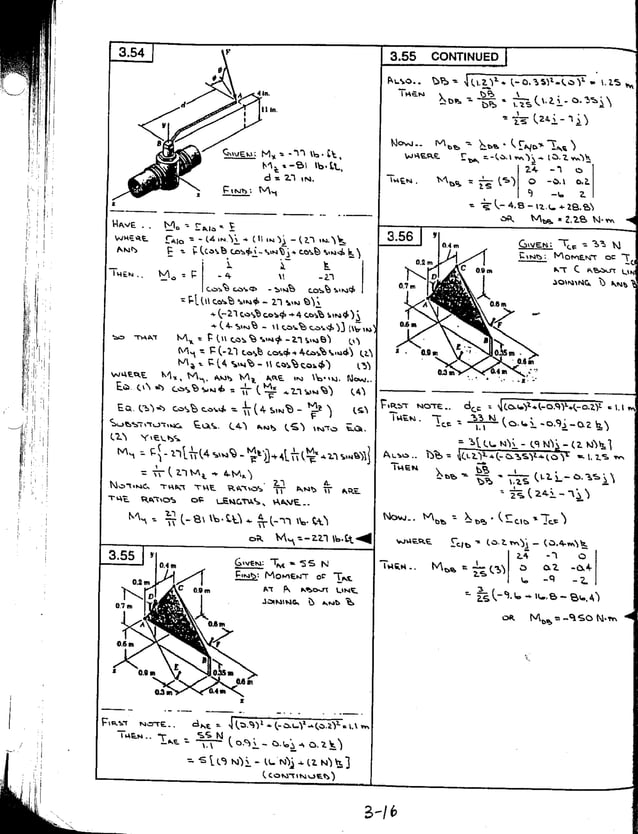 3.54
F
θ
φ
A
4 in.
11 in.
d
y
B
x
z
GIVEN: Mx = -77 lb·ft,
Mz = -81 lb·ft,
d = 27 IN.
FIND: My
HAVE.. M_O = r_A/O × F
WHERE r_A/O = -(4 IN.)i + (11 IN.)j - (27 IN.)k
AND F = F(cosθ cosφ i - sinθ j + cosθ sinφ k)
THEN.. M_O = F | i j k |
| -4 11 -27 |
| cosθ cosφ -sinθ cosθ sinφ |
= F[(11 cosθ sinφ - 27 sinθ)i
+ (-27 cosθ cosφ + 4 cosθ sinφ)j
+ (4 sinθ - 11 cosθ cosφ)k] (lb·IN.)
SO THAT Mx = F(11 cosθ sinφ - 27 sinθ) (1)
My = F(-27 cosθ cosφ + 4 cosθ sinφ) (2)
Mz = F(4 sinθ - 11 cosθ cosφ) (3)
WHERE Mx, My, AND Mz ARE IN lb·IN. NOW..
EQ. (1) ⇒ cosθ sinφ = 1/11 (Mx/F + 27 sinθ) (4)
EQ. (3) ⇒ cosθ cosφ = 1/11 (4 sinθ - Mz/F) (5)
SUBSTITUTING EQS. (4) AND (5) INTO EQ.
(2) YIELDS
My = F{-27[1/11 (4 sinθ - Mz/F)] + 4[1/11 (Mx/F + 27 sinθ)]}
= 1/11 (27 Mz + 4 Mx)
NOTING THAT THE RATIOS 27/11 AND 4/11 ARE
THE RATIOS OF LENGTHS, HAVE..
My = 27/11 (-81 lb·ft) + 4/11 (-77 lb·ft)
OR My = -227 lb·ft ◀
3.55
y
0.4 m
0.2 m
C
0.9 m
D
0.7 m
A
0.6 m
F
0.6 m
B
E
0.35 m
z
0.9 m
0.6 m
0.3 m
0.4 m
x
GIVEN: T_AE = 55 N
FIND: MOMENT OF T_AE
AT A ABOUT LINE
JOINING D AND B
FIRST NOTE.. d_AE = √((0.9)² + (-0.6)² + (0.2)²) = 1.1 m
THEN.. T_AE = 55 N/1.1 (0.9i - 0.6j + 0.2k)
= 5[(9 N)i - (6 N)j + (2 N)k]
(CONTINUED)
3.55 CONTINUED
ALSO.. DB = √((1.2)² + (-0.35)² + (0)²) = 1.25 m
THEN λ_DB = DB/DB = 1/1.25 (1.2i - 0.35j)
= 1/25 (24i - 7j)
NOW.. M_DB = λ_DB · (r_A/D × T_AE)
WHERE r_DA = -(0.1 m)j + (0.2 m)k
THEN.. M_DB = 1/25 (5) | 24 -7 0 |
| 0 -0.1 0.2 |
| 9 -6 2 |
= 1/5 (-4.8 - 12.6 + 28.8)
OR M_DB = 2.28 N·m ◀
3.56
y
0.4 m
0.2 m
C
0.9 m
D
0.7 m
A
F
0.6 m
0.6 m
B
E
0.35 m
z
0.9 m
0.6 m
0.3 m
0.4 m
x
GIVEN: T_CF = 33 N
FIND: MOMENT OF T_C
AT C ABOUT LIN
JOINING D AND B
FIRST NOTE.. d_CF = √((0.6)² + (-0.9)² + (-0.2)²) = 1.1 m
THEN.. T_CF = 33 N/1.1 (0.6i - 0.9j - 0.2k)
= 3[(6 N)i - (9 N)j - (2 N)k]
ALSO.. DB = √((1.2)² + (-0.35)² + (0)²) = 1.25 m
THEN λ_DB = DB/DB = 1/1.25 (1.2i - 0.35j)
= 1/25 (24i - 7j)
NOW.. M_DB = λ_DB · (r_C/D × T_CF)
WHERE r_C/D = (0.2 m)j - (0.4 m)k
THEN.. M_DB = 1/25 (3) | 24 -7 0 |
| 0 0.2 -0.4 |
| 6 -9 -2 |
= 3/25 (-9.6 + 16.8 - 86.4)
OR M_DB = -9.50 N·m ◀
3-16